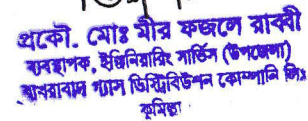 প্রকৌ. মোঃ মীর ফজলে রাব্বী
ব্যবস্থাপক, ইঞ্জিনিয়ারিং সার্ভিস (উপজেলা)
বাখরাবাদ গ্যাস ডিস্ট্রিবিউশন কোম্পানি লিঃ
কুমিল্লা